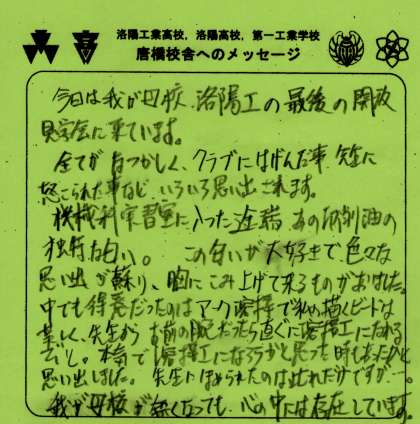 洛陽工業高校，洛陽高校，第一工業学校
唐橋校舎へのメッセージ
今日は我が母校、洛陽工の最後の開放
見学会に来ています。
全てがなつかしく、クラブにはげんだ事 先生に
怒こられた事など いろいろ思い出されます。
機械科実習室に入った途端、あの切削油の
独特な匂い。 この匂いが大好きで、色々な
思い出が蘇り、胸にこみ上げて来るものがありました。
中でも得意だったのはアーク溶接で私の描くビードは
美しく、先生から お前の腕だったら直ぐに溶接工になれる
ぞ。本気で溶接工になろうかと思った時もあったかと
思い出しました。 先生にほめられたのは此れだけですが…
我が母校が無くなっても、心の中には存在しています。